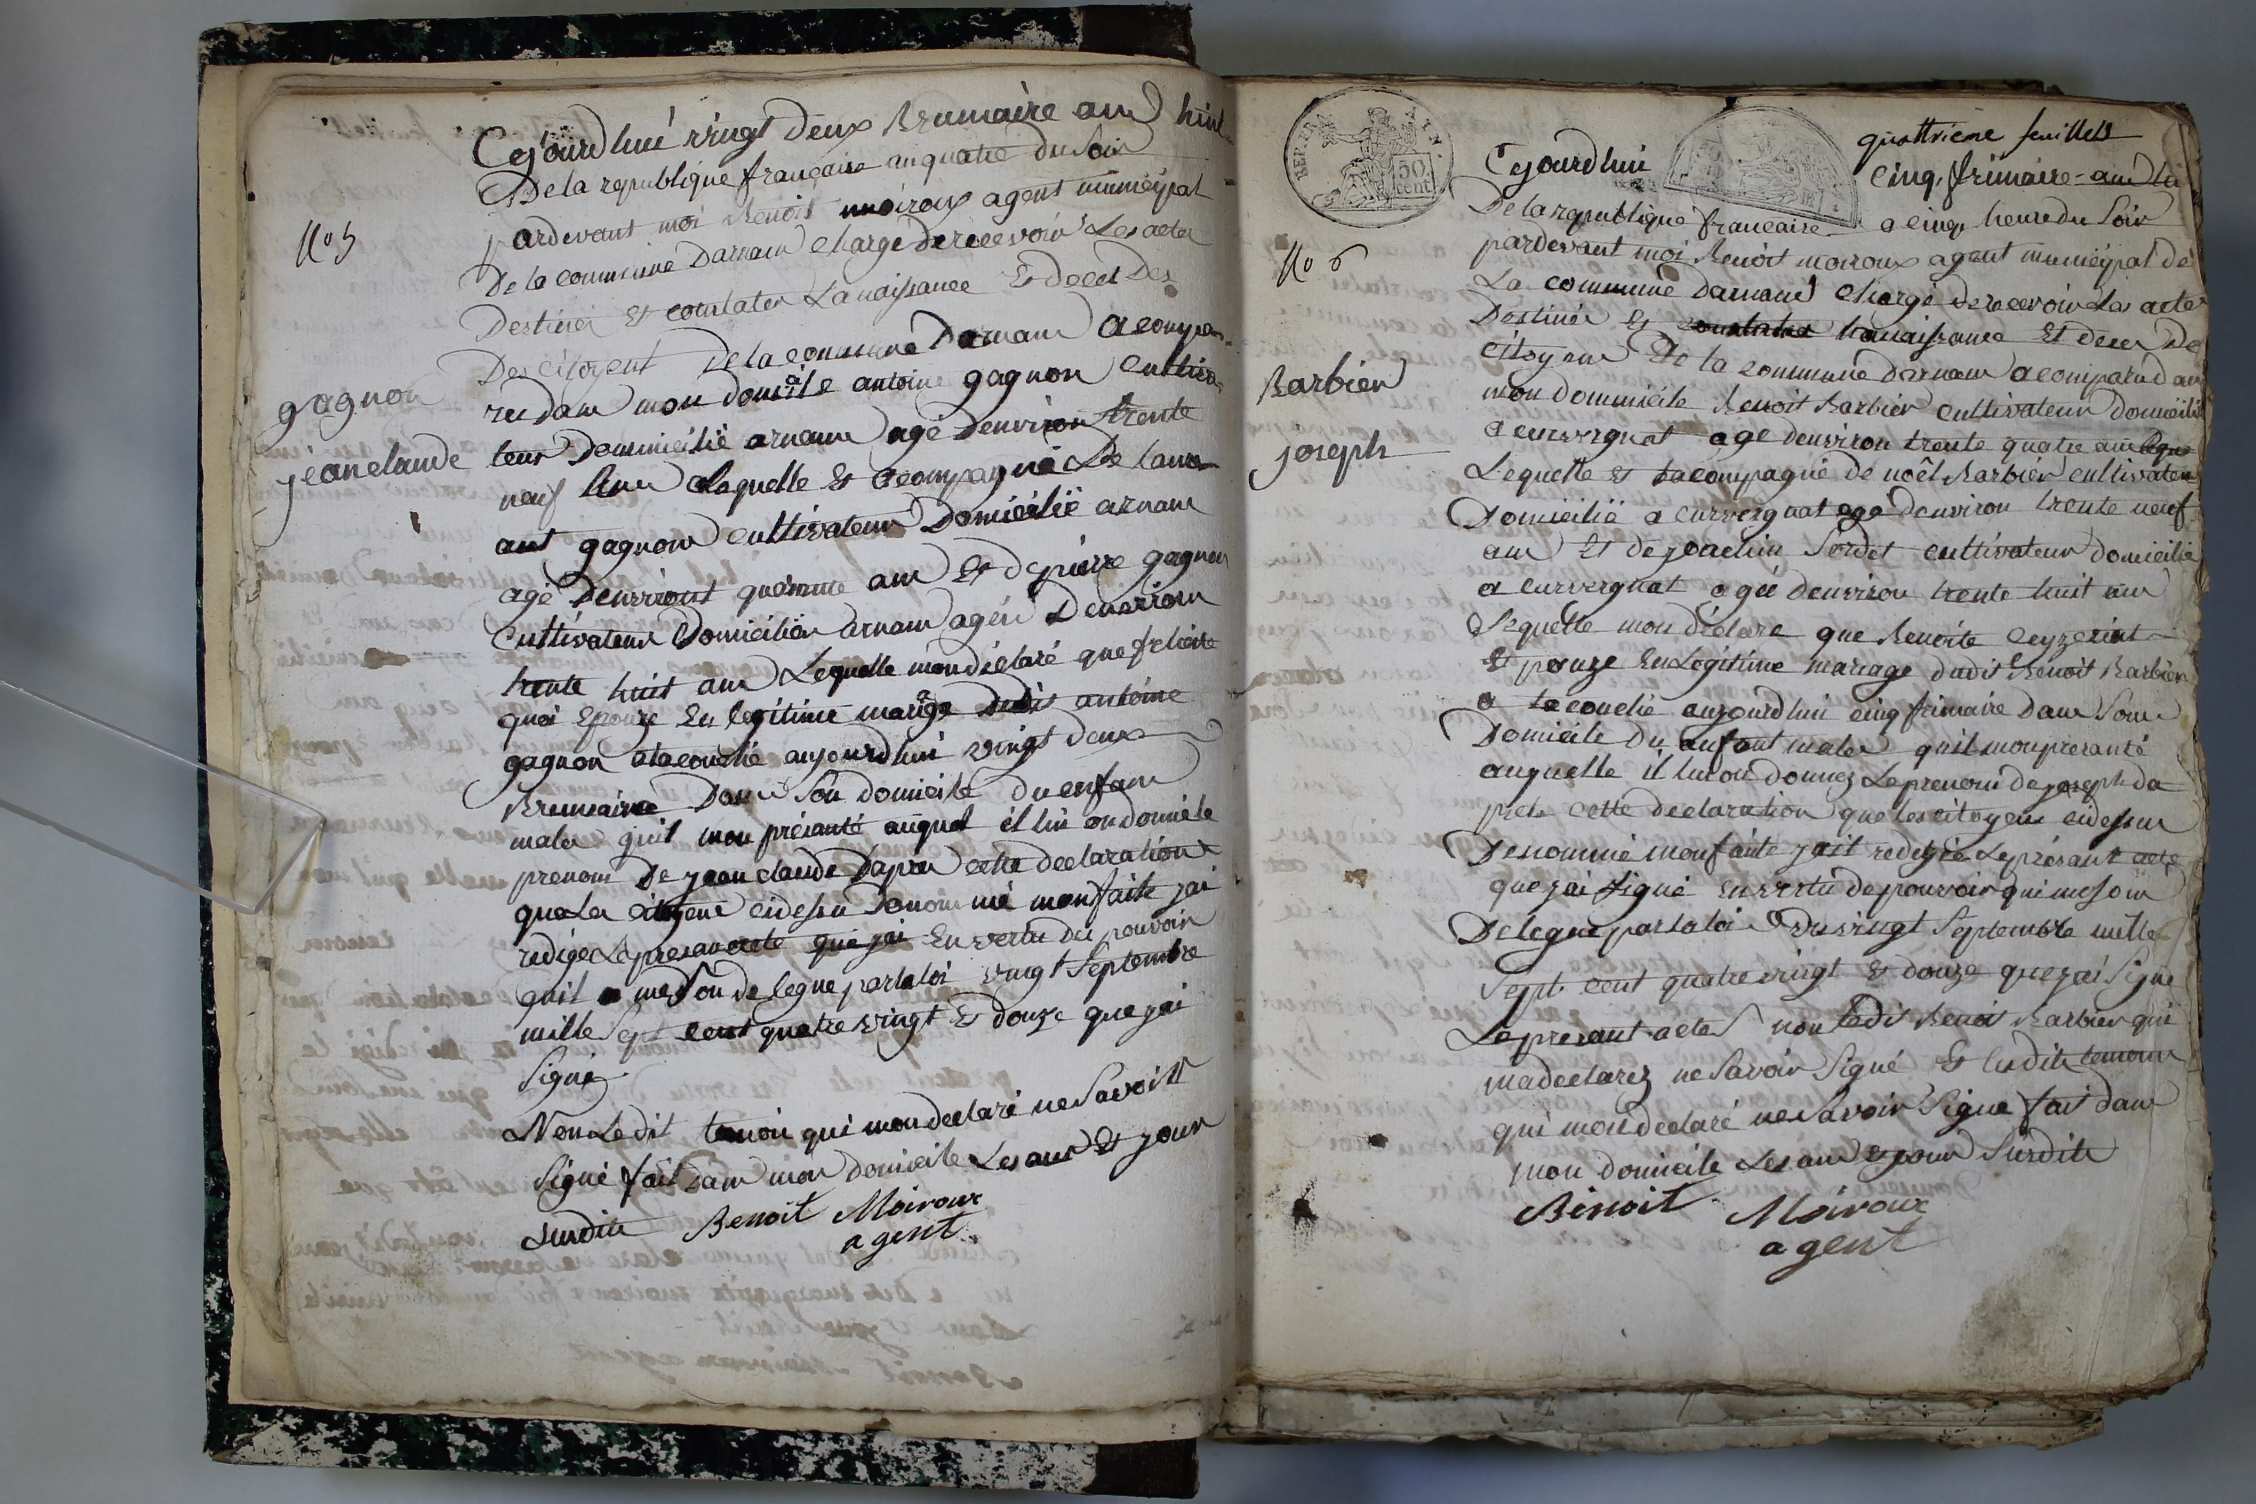 Cejourdhui vingt deux Brumaire ans huit
De la republique francaise an quatre du Soir
pardevant moi Benoit moiroux agent municipal
De la commune Darnam charge de recevoir Les actes
Destiner Et constater La naissance Et deces Des
Des citoyent De la commune Darnam a compa
ru dans mon domicile antoine gagnon cultiva
teur Domicilié arnam agé denviron trente
neuf ans Laquelle Et acompagné De
gagnon cultivateur Domicilié arnam
agé Denviront quarante ans Et de pierre gagnon
Cultivateur Domicilier arnam agér Denviron
trente huit ans Lequelle mon déclaré que
Epouze En legitime mariage Dudit antoine
gagnon a lacouché aujourdhui vingt deux
Brumaire Dans Son domicile Du enfant
maler quil mon présanté auquel il lui on donné le
prenom De jean claude Dapres cette declaration
que Les citoyens cidessu Denommé monfaite jai
redigé Le presant acte que jai En vertu du pouvoir
quil me Son delegue par la loi vingt Septembre
mille Sept cent quatre vingt Et douze que jai
Signé
Non Le dit temoin qui mon declaré ne Savoir
Signé fait dans mon domicile Les ans Et jour
Surdite Benoit Moiroux
agent
No 5
gagnon
jeanclaude
REP FRA
50
cent
quattrieme feuillets
Cejourdhui cinq frimaire ans
De la republique francaise a cinq heure du Soir
pardevant moi Benoit moiroux agent municipal de
La commune Darnam chargé de recevoir Les actes
Destiner Et constater La naissance Et deces De
citoyens De la commune Darnam a comparu dans
mon dommicile Benoit Barbier cultivateur domicilié
a curvergnat agé denviron trente quatre ans
Lequelle Et tacompagné de noêl Barbier cultivateur
Domicilié a curvergnat agé denviron trente neuf
ans Et de joachim Sordet cultivateur domicilié
a curvergnat agée denviron trente huit ans
Lequelle mon déclare que Benoite ceyzeriat
Et pouze En Legitime mariage dudit Benoit Barbier
a tacouché aujourdhui cinq frimaire dans Son
Domicile Du enfant maler quil mon presanté
auquelle il lui on donnez Le prenom de joseph da
pres cette declaration que les citoyens cidessur
Denommé monfaite jait redigée Le présant acte
que jai Signé En vertu de pouvoir qui me Son
Delegué par la loi du vingt Septembre mille
Sept cent quatre vingt Et douze que jai Signe
Le presant actes non Ledit Benoit Barbier qui
ma declarez ne Savoir Signé Et lesdits temoin
qui mon declaré ne Savoir Signé fait dans
mon domicile Les ans Et jour Surdite
Benoit Moiroux
agent
No 6
Barbier
joseph